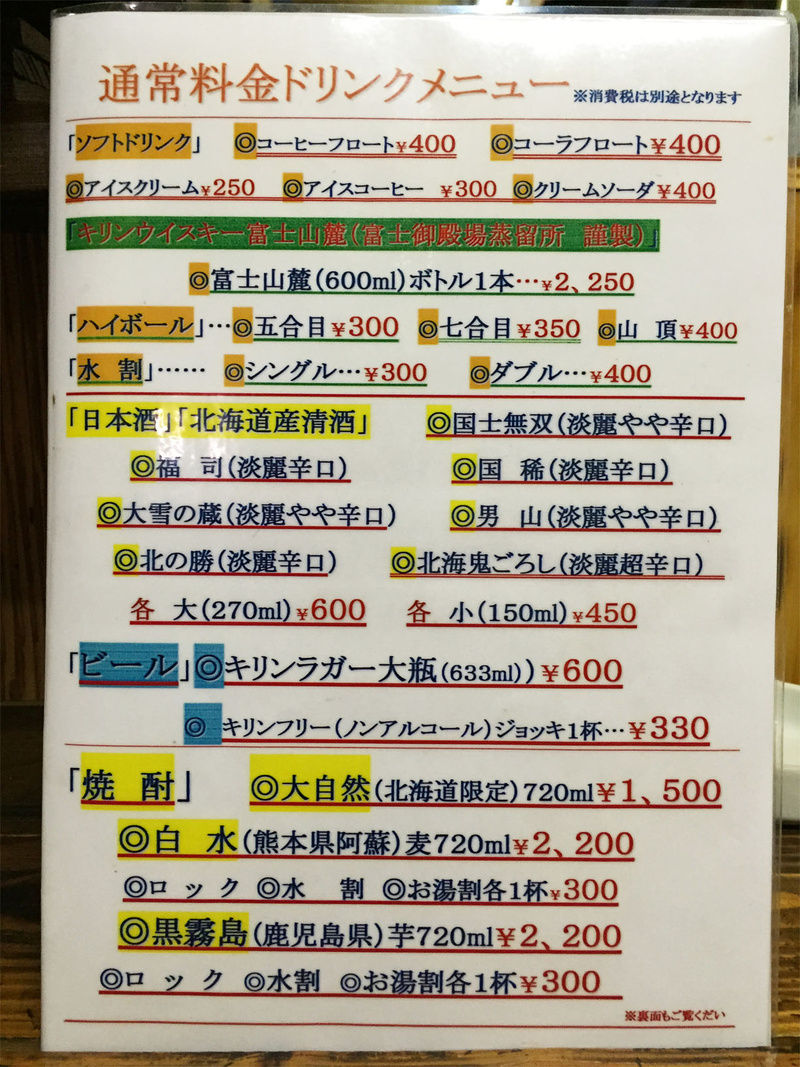 通常料金ドリンクメニュー ※消費税は別途となります
「ソフトドリンク」 ◎コーヒーフロート¥400 ◎コーラフロート¥400
◎アイスクリーム¥250 ◎アイスコーヒー ¥300 ◎クリームソーダ¥400
「キリンウイスキー富士山麓(富士御殿場蒸留所 謹製)」
◎富士山麓(600ml)ボトル1本…¥2、250
「ハイボール」…◎五合目¥300 ◎七合目¥350 ◎山 頂¥400
「水 割」…… ◎シングル…¥300 ◎ダブル…¥400
「日本酒」「北海道産清酒」 ◎国士無双(淡麗やや辛口)
◎福 司(淡麗辛口) ◎国 稀(淡麗辛口)
◎大雪の蔵(淡麗やや辛口) ◎男 山(淡麗やや辛口)
◎北の勝(淡麗辛口) ◎北海鬼ごろし(淡麗超辛口)
各 大(270ml)¥600 各 小(150ml)¥450
「ビール」◎キリンラガー大瓶(633ml))¥600
◎ キリンフリー(ノンアルコール)ジョッキ1杯…¥330
「焼 酎」 ◎大自然(北海道限定)720ml¥1、500
◎白 水(熊本県阿蘇)麦720ml¥2、200
◎ロ ッ ク ◎水 割 ◎お湯割各1杯¥300
◎黒霧島(鹿児島県)芋720ml¥2、200
◎ロ ッ ク ◎水割 ◎お湯割各1杯¥300
※裏面もご覧くだい